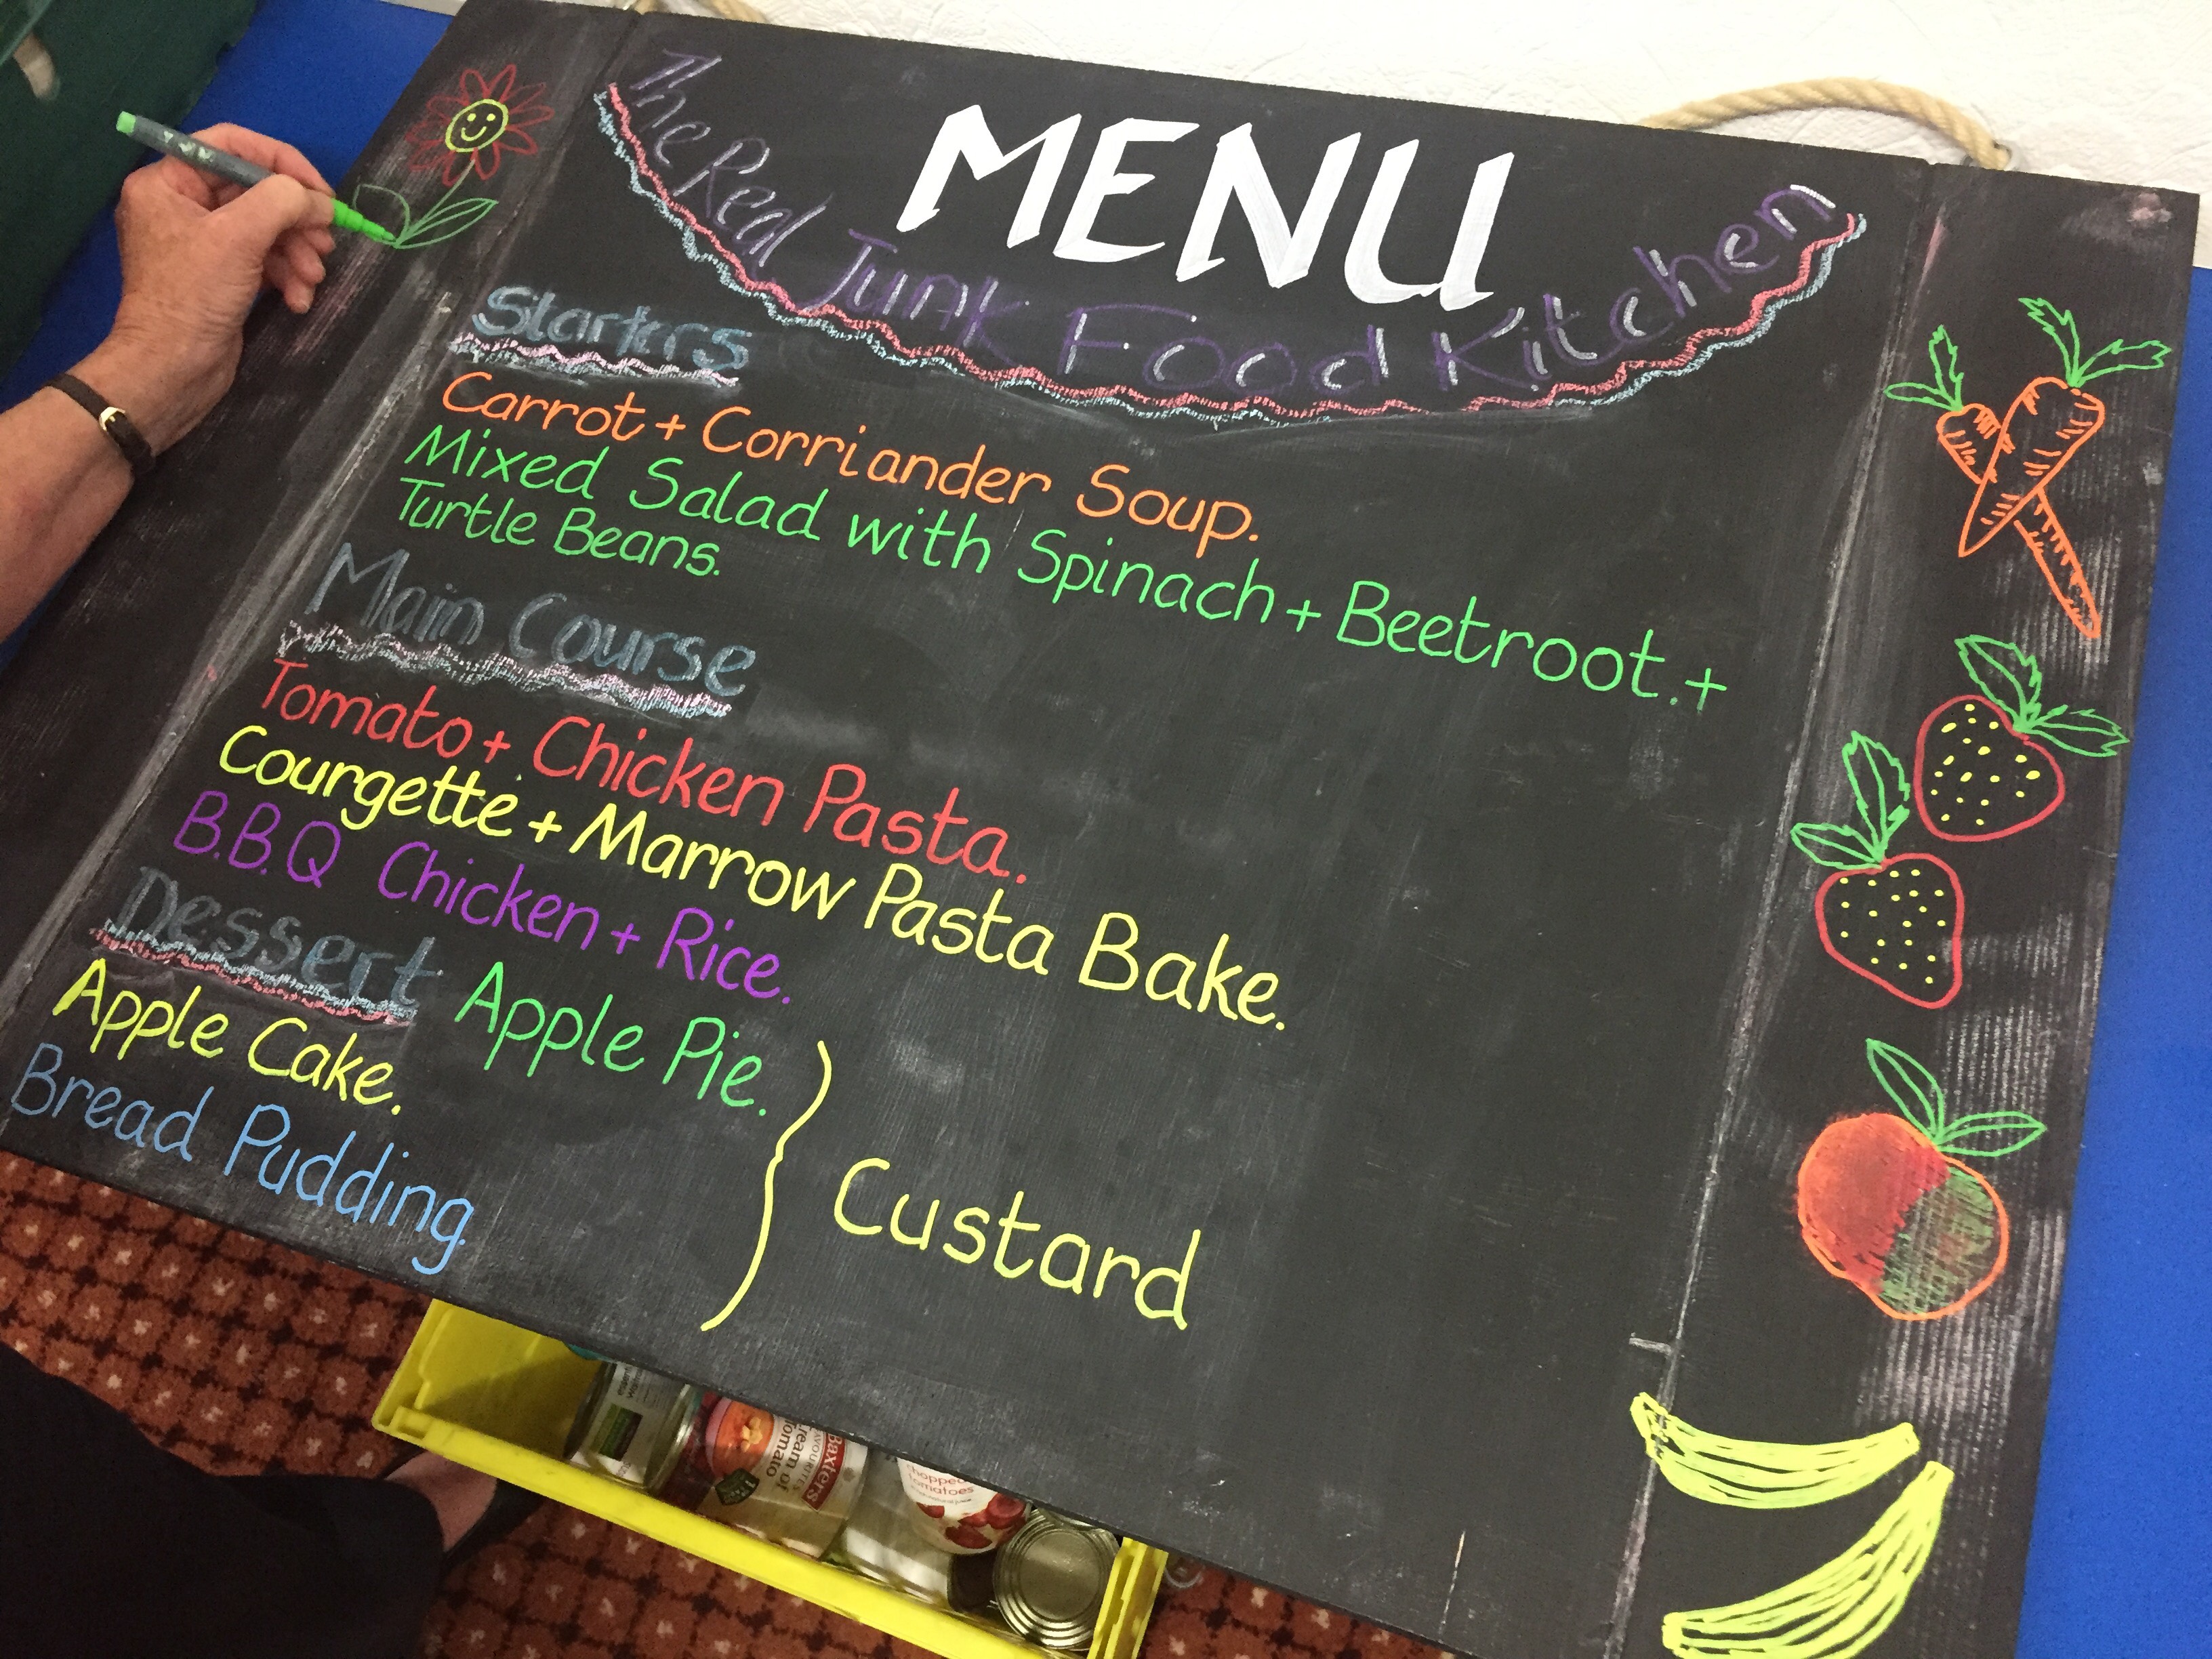 MENU
The Real Junk Food Kitchen
Starters
Carrot + Corriander Soup.
Mixed Salad with Spinach + Beetroot. +
Turtle Beans.
Main Course
Tomato + Chicken Pasta.
Courgette + Marrow Pasta Bake.
B.B.Q Chicken + Rice.
Dessert
Apple Pie.
Apple Cake.
Bread Pudding
Custard
Baxters
FAVOURITES
Cream of
Tomato
chopped
tomatoes